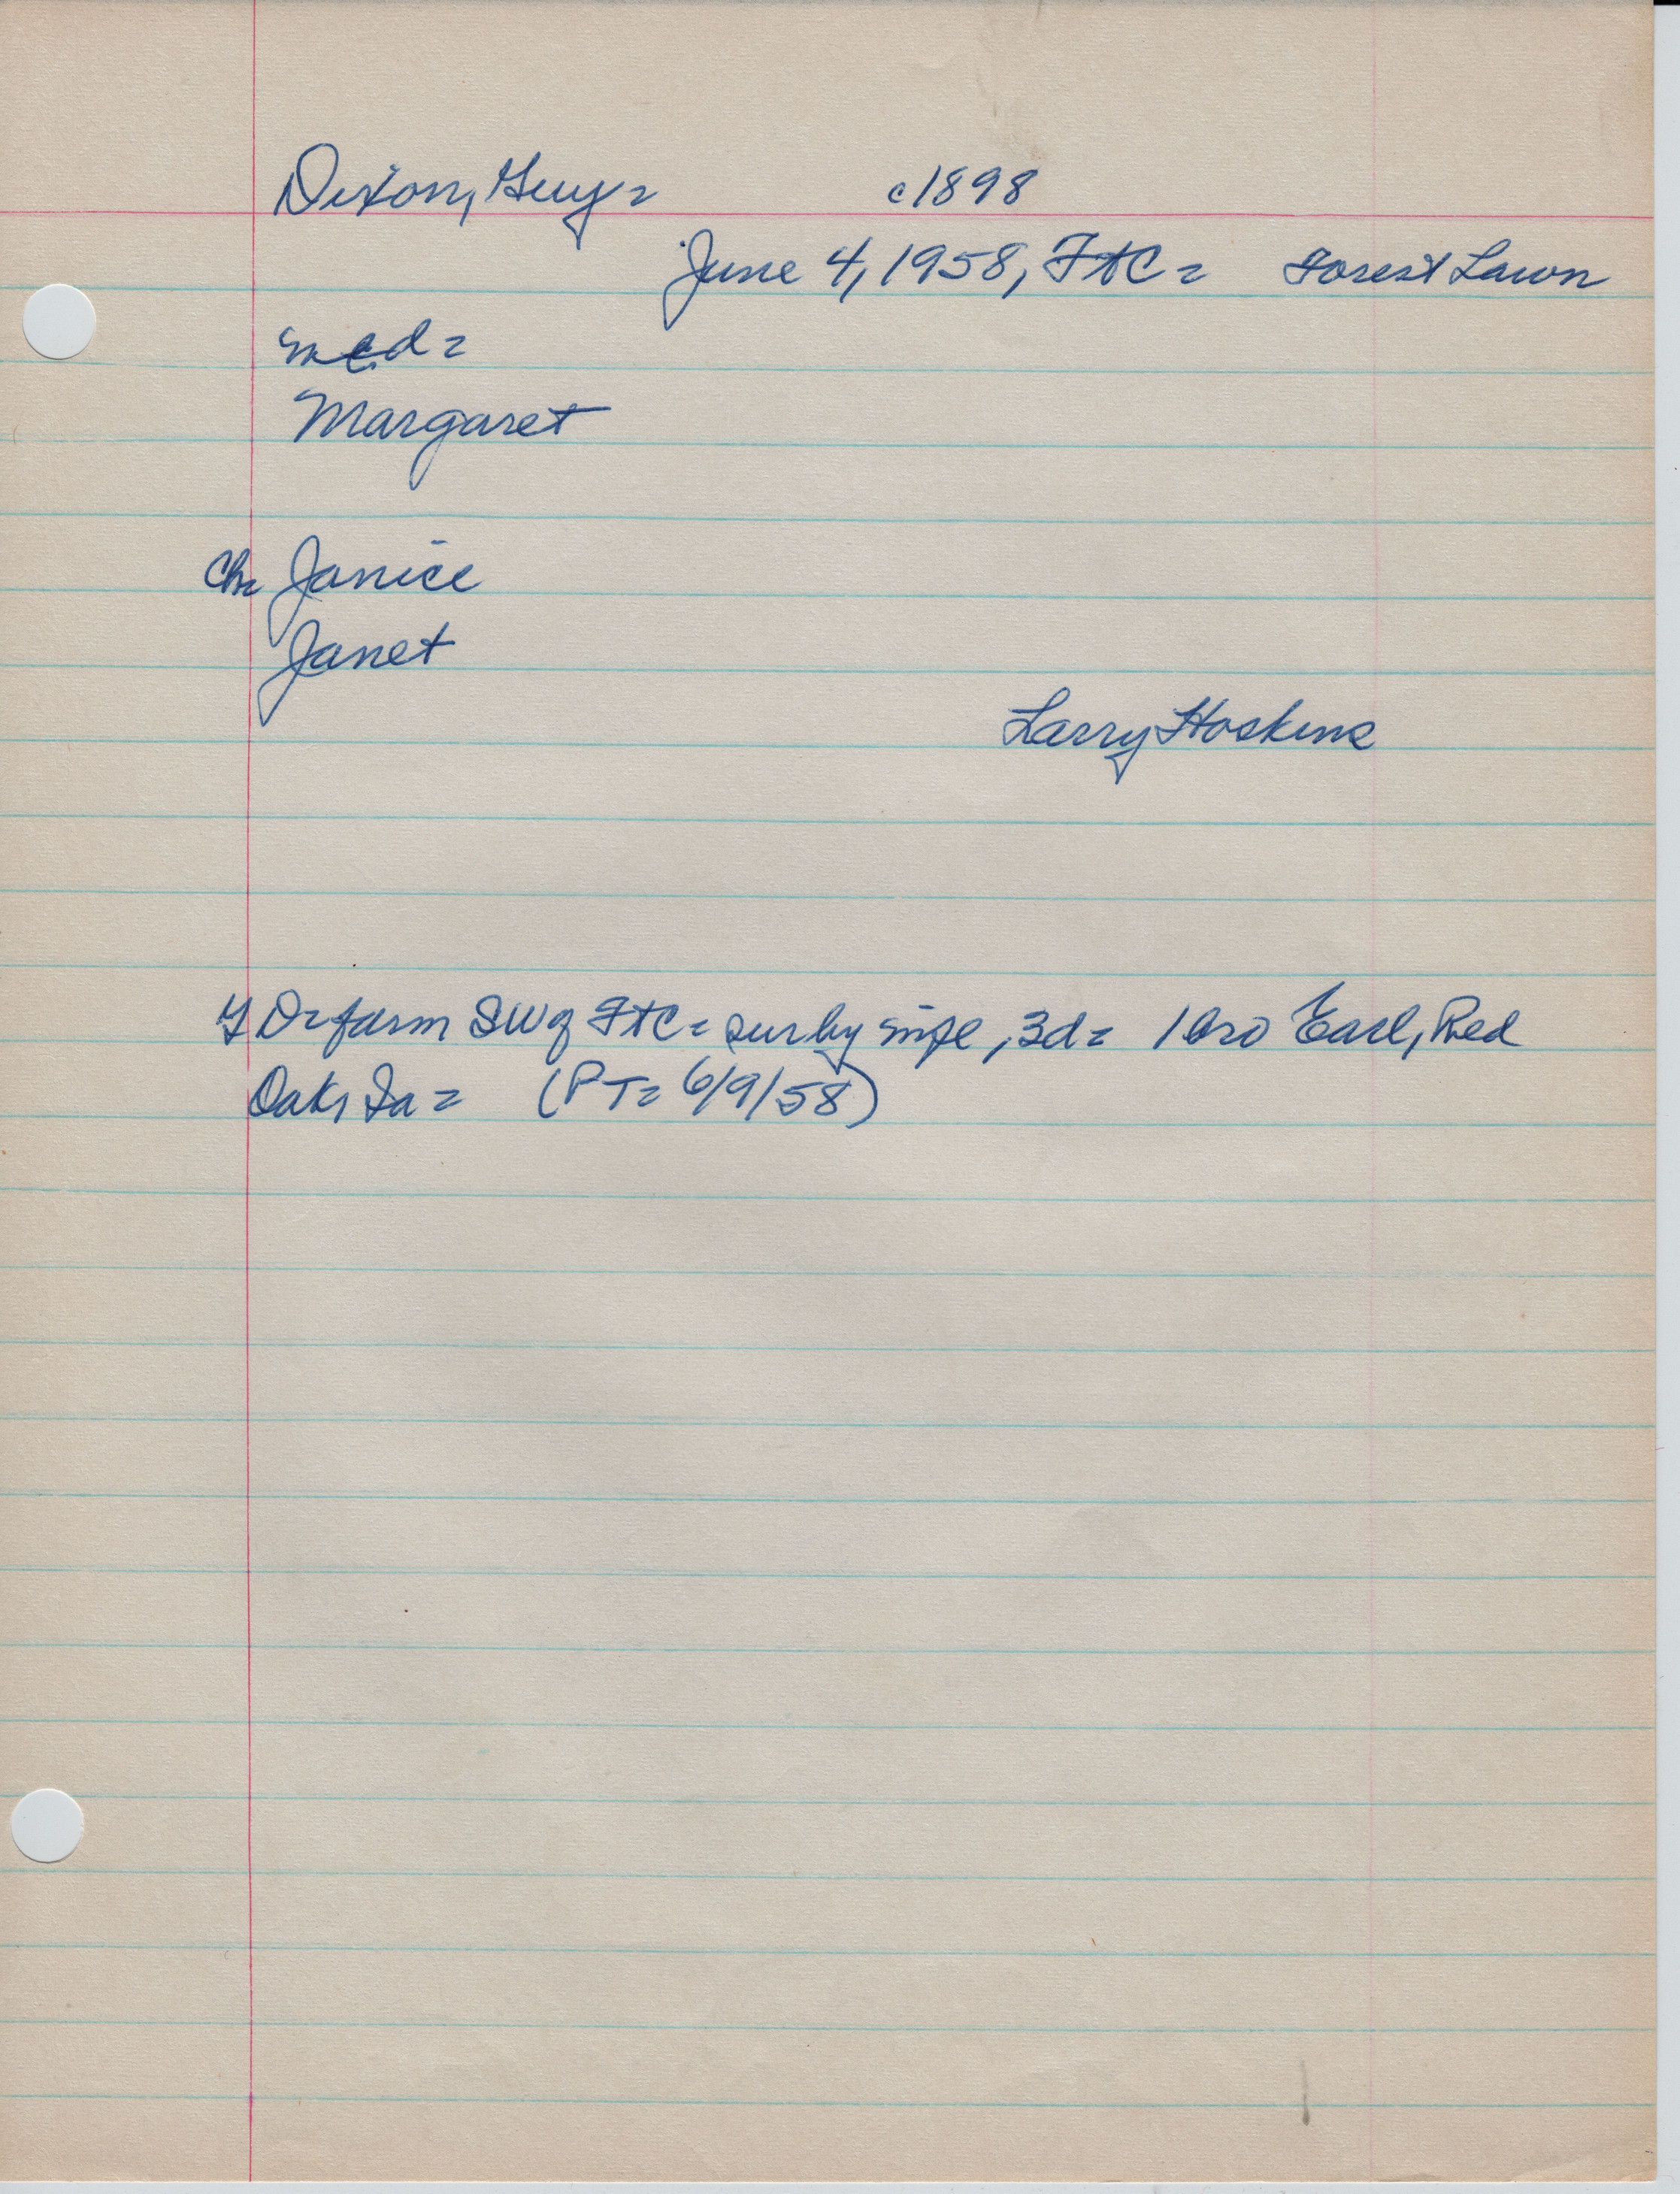 Dixon, Guy= c1898
June 4, 1958, FtC= Forest Lawn
med=
Margaret
Ch= Janice
Janet
Larry Hoskins
GD=farm SW of FtC= sur by wife, 3d= 1 bro Earl, Red
Oak, Ia= (PT= 6/9/58)